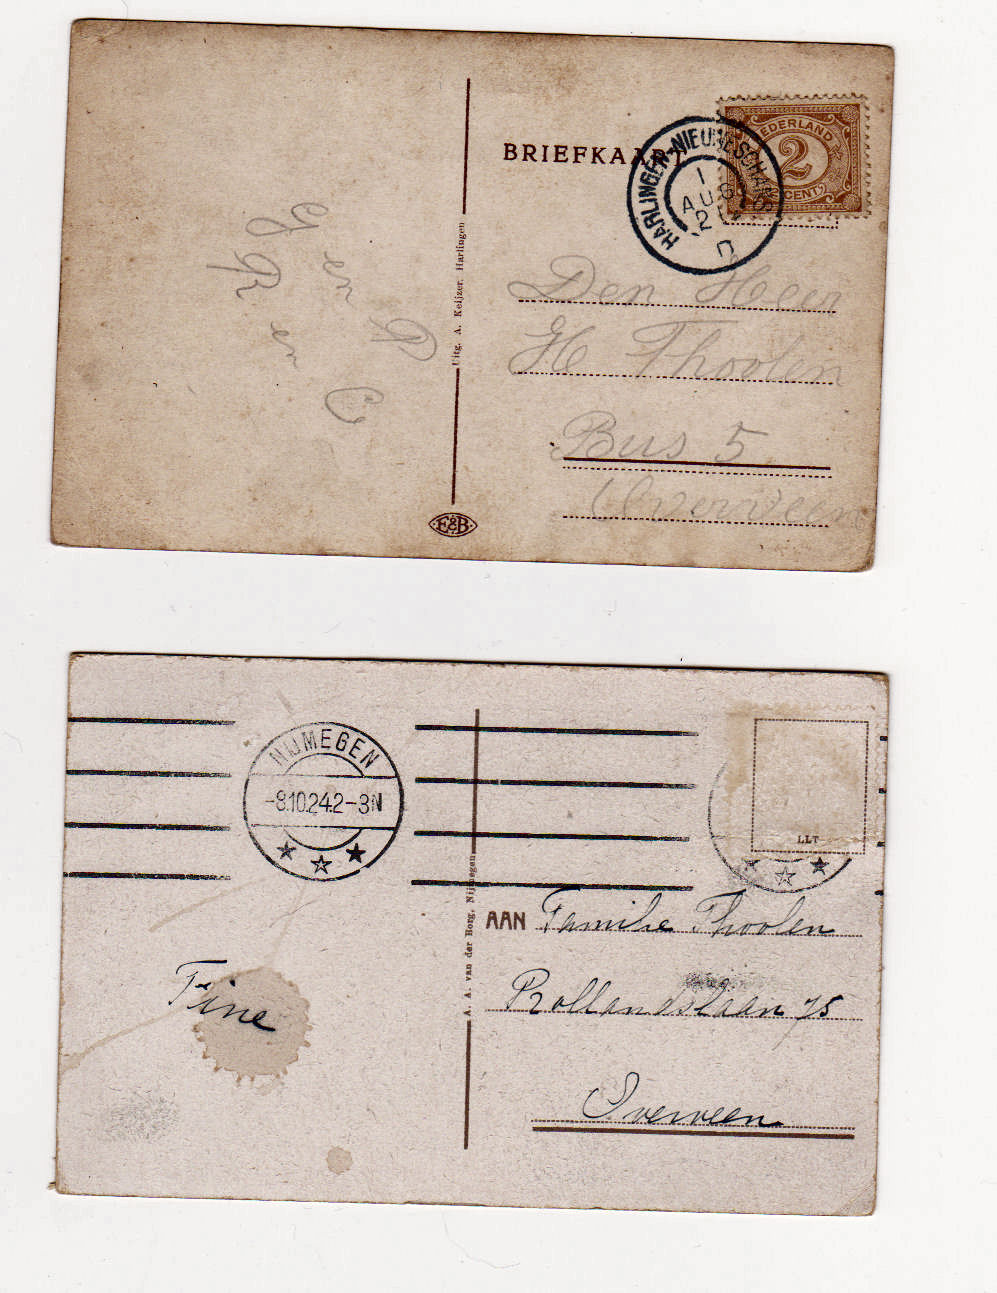 BRIEFKAART
NEDERLAND
2
CENT
HARLINGEN-NIEUWESCHANS
1
AUG
2
D
Den Heer
H Thoolen
Bus 5
Overveen
Uitg. A. Keijzer, Harlingen
E&B
NIJMEGEN
-8.10.24.2-3N
LLT
AAN Familie Thoolen
Rollandslaan 75
Overveen
Fine
A. A. van der Borg, Nijmegen